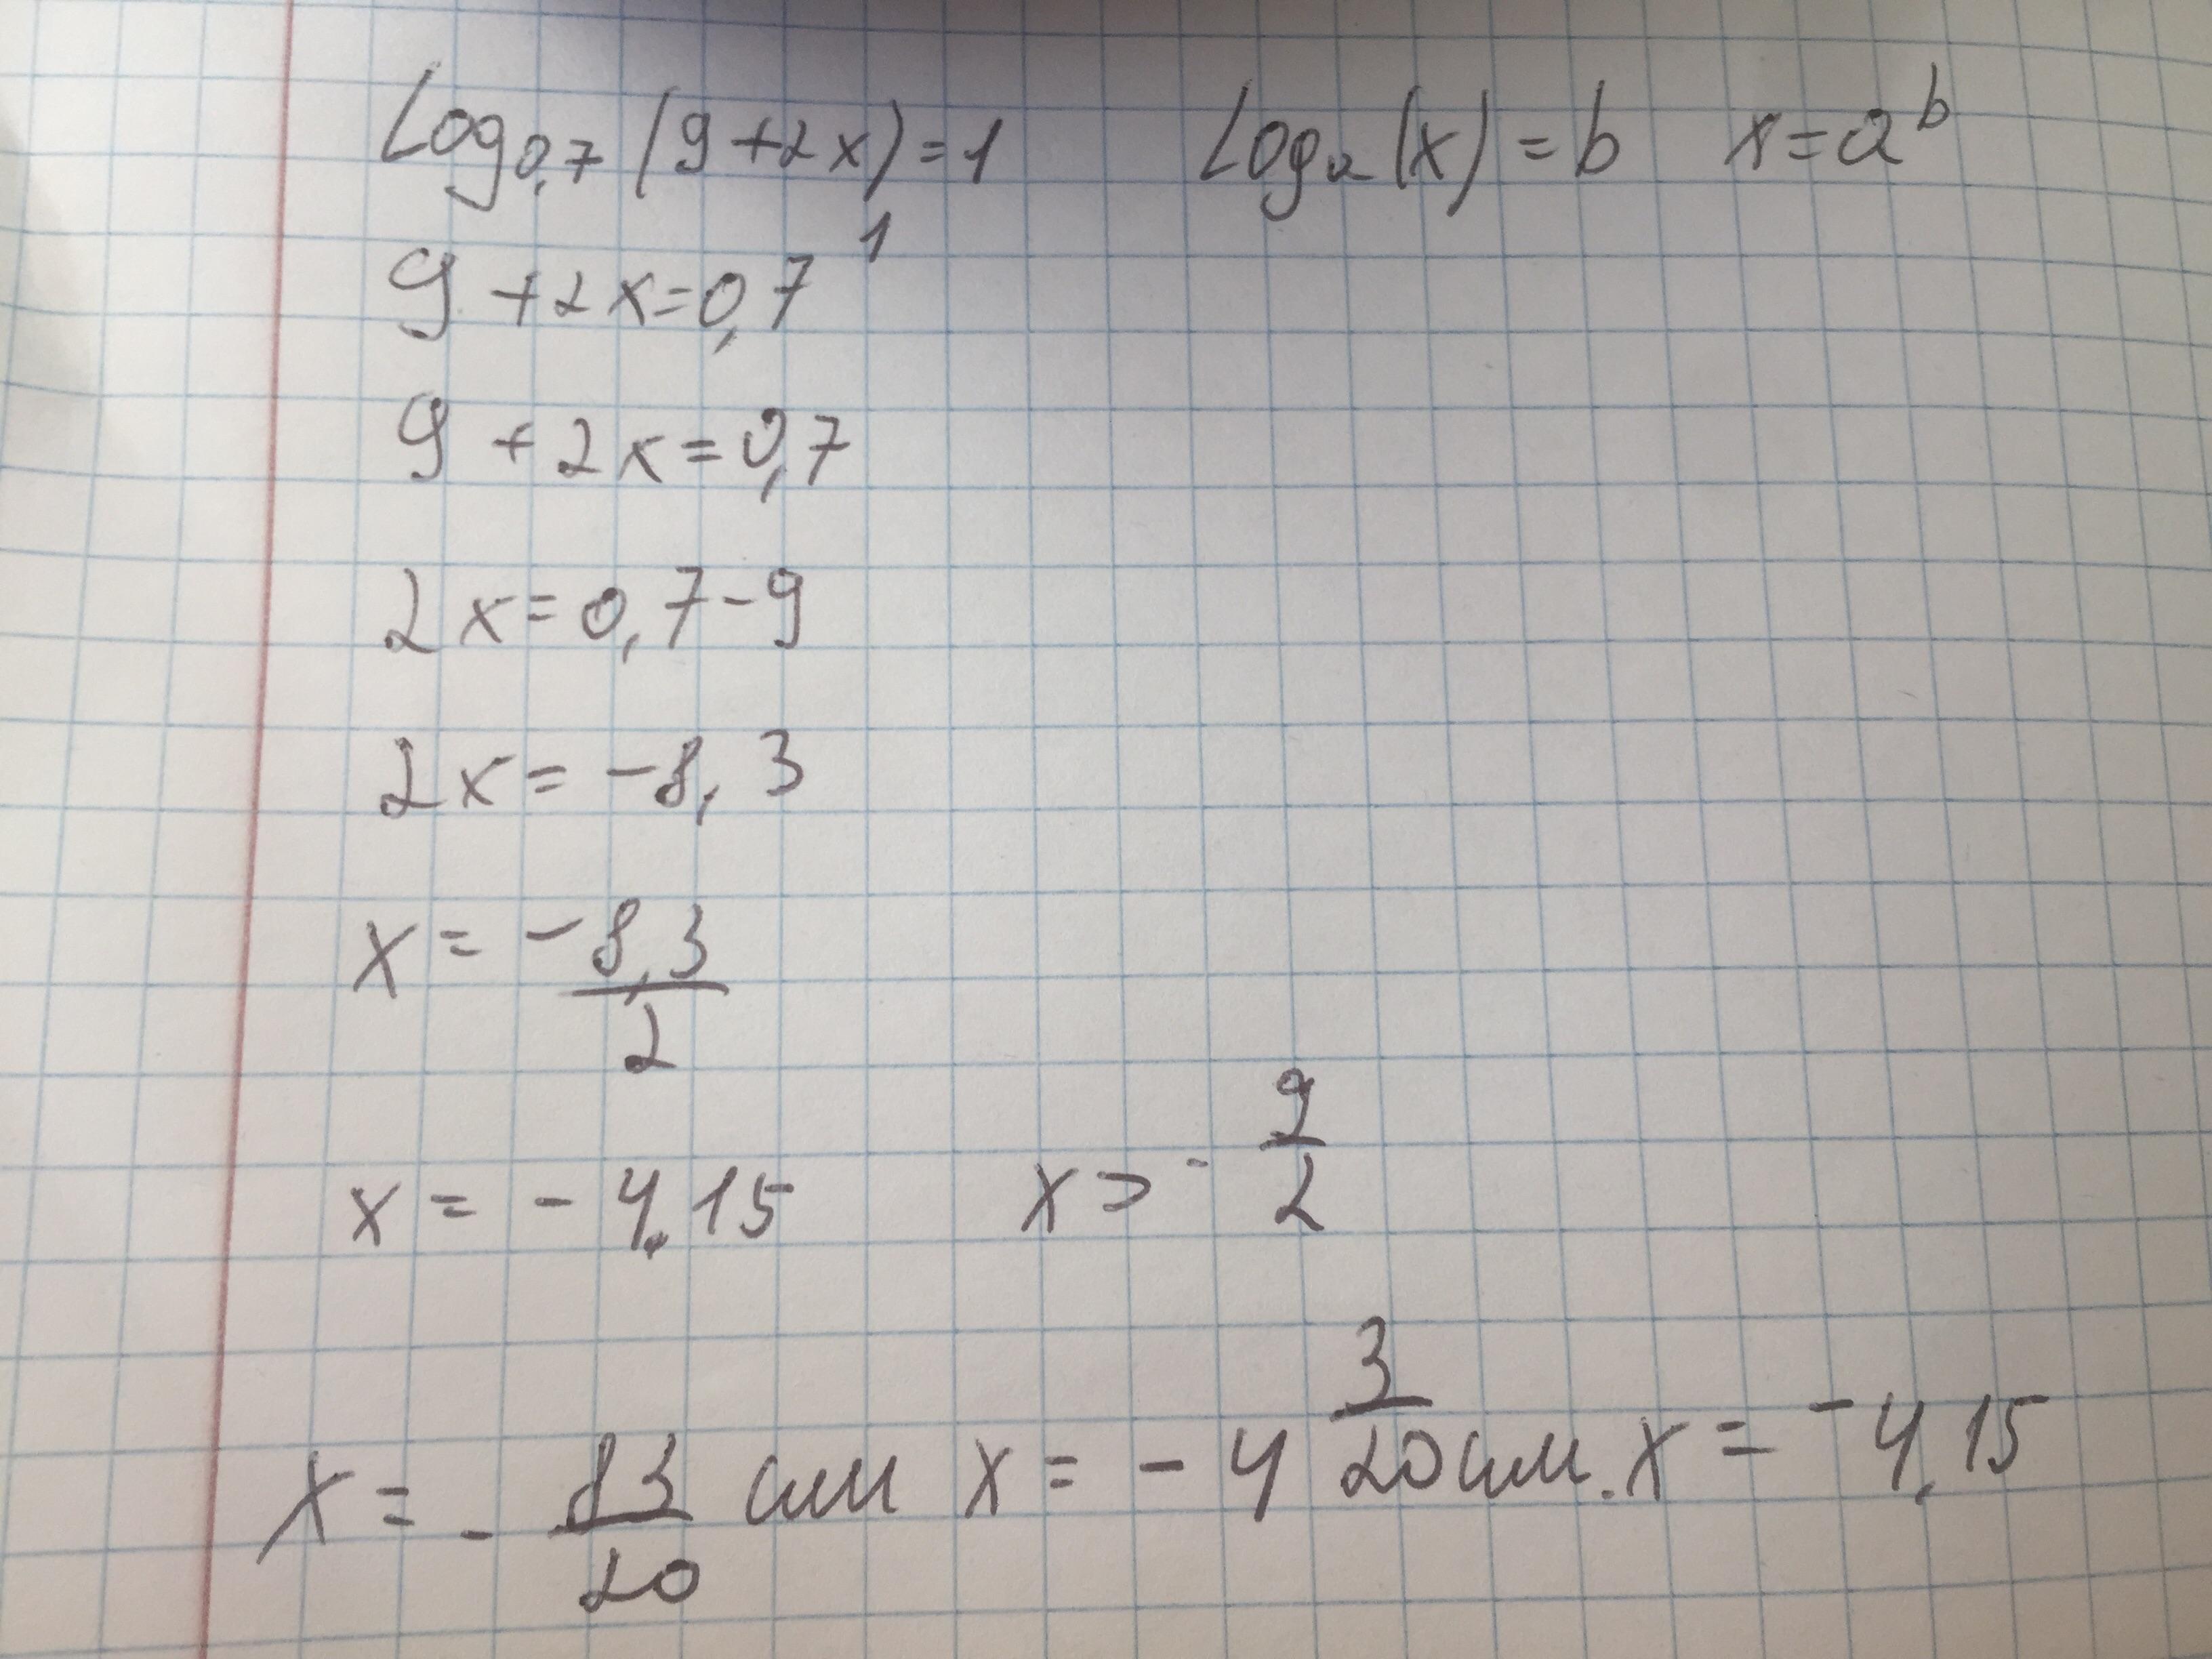 Log₀,₇ (9+2x)=1 Logₐ(x)=b x=aᵇ
9+2x=0,7¹
9+2x=0,7
2x=0,7-9
2x=-8,3
x=-8,3/2
x=-4,15 x>-9/2
x=-83/20 или x=-4 3/20 или. x=-4,15